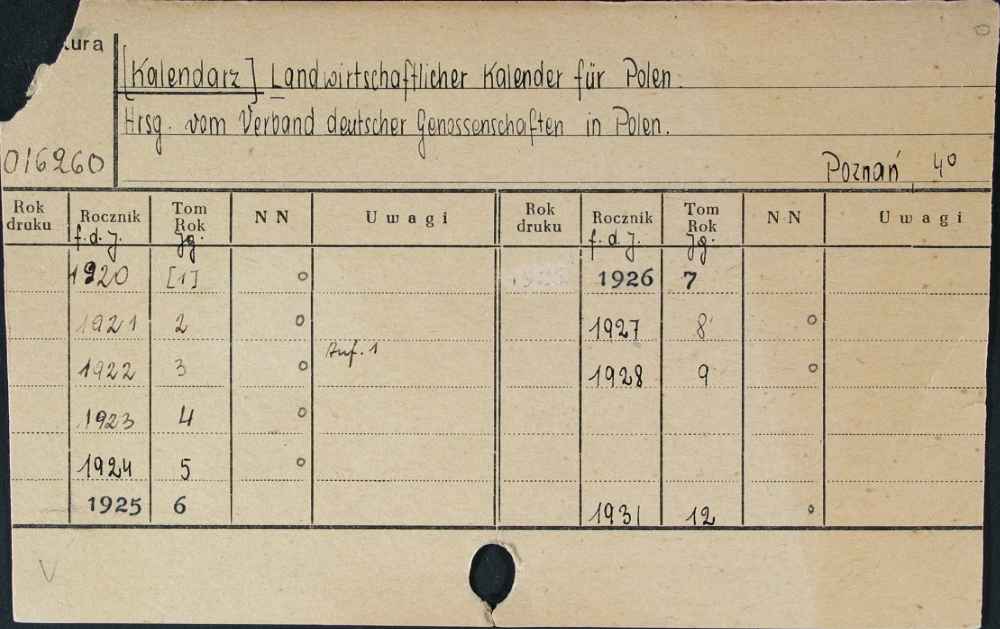 ura
[Kalendarz] Landwirtschaftlicher Kalender für Polen.
Hrsg. vom Verband deutscher Genossenschaften in Polen.
016260
Poznań, 4°
Rok druku Rocznik Tom Rok NN Uwagi Rok druku Rocznik Tom Rok NN Uwagi
f. d. J. Jg. f. d. J. Jg.
1920 [1] o 1926 7
1921 2 o 1927 8 o
1922 3 o Auf. 1 1928 9 o
1923 4 o
1924 5 o
1925 6 1931 12 o
V